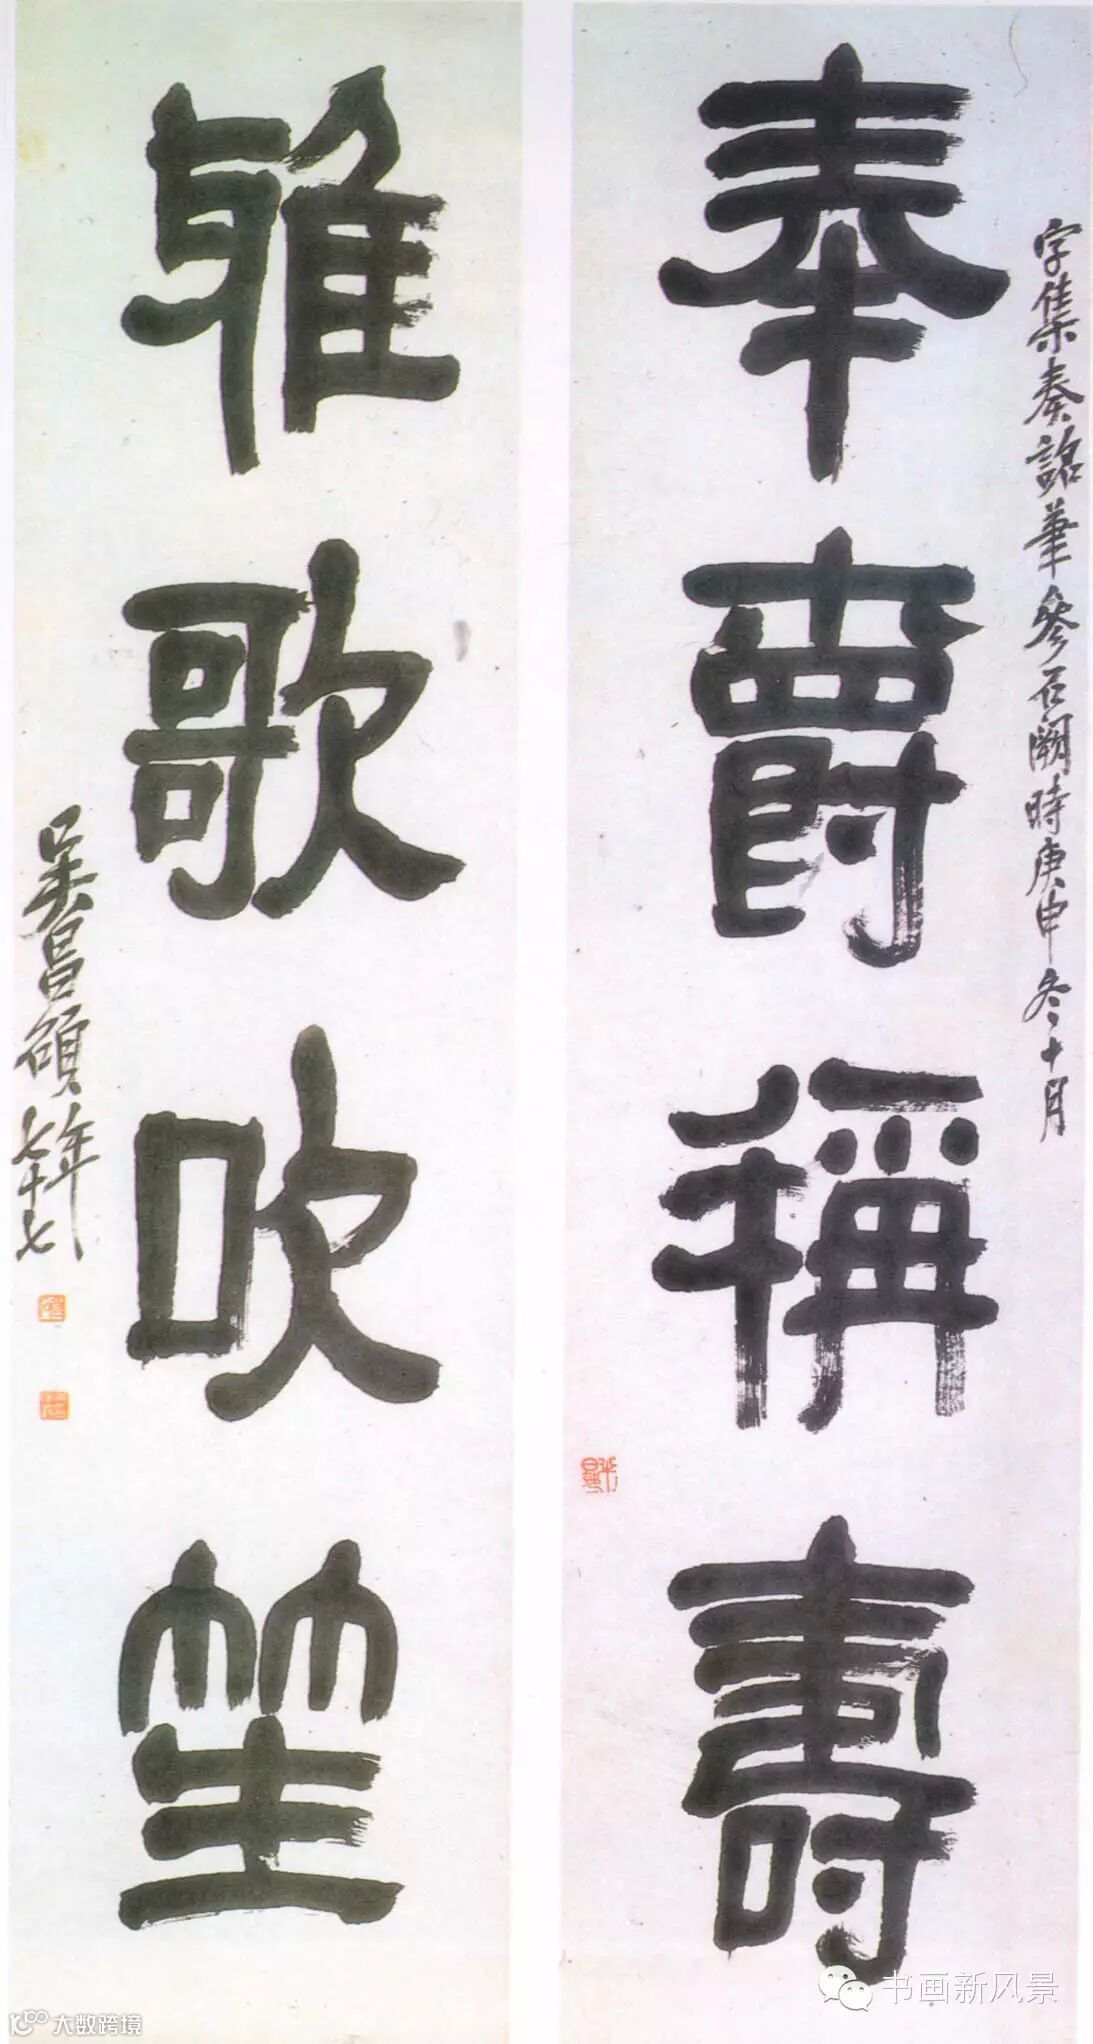 奉爵稱壽
字集秦詔筆參石闕時庚申冬十月
雅歌吹笙
吳昌碩年七十七
书画新风景
大数跨境